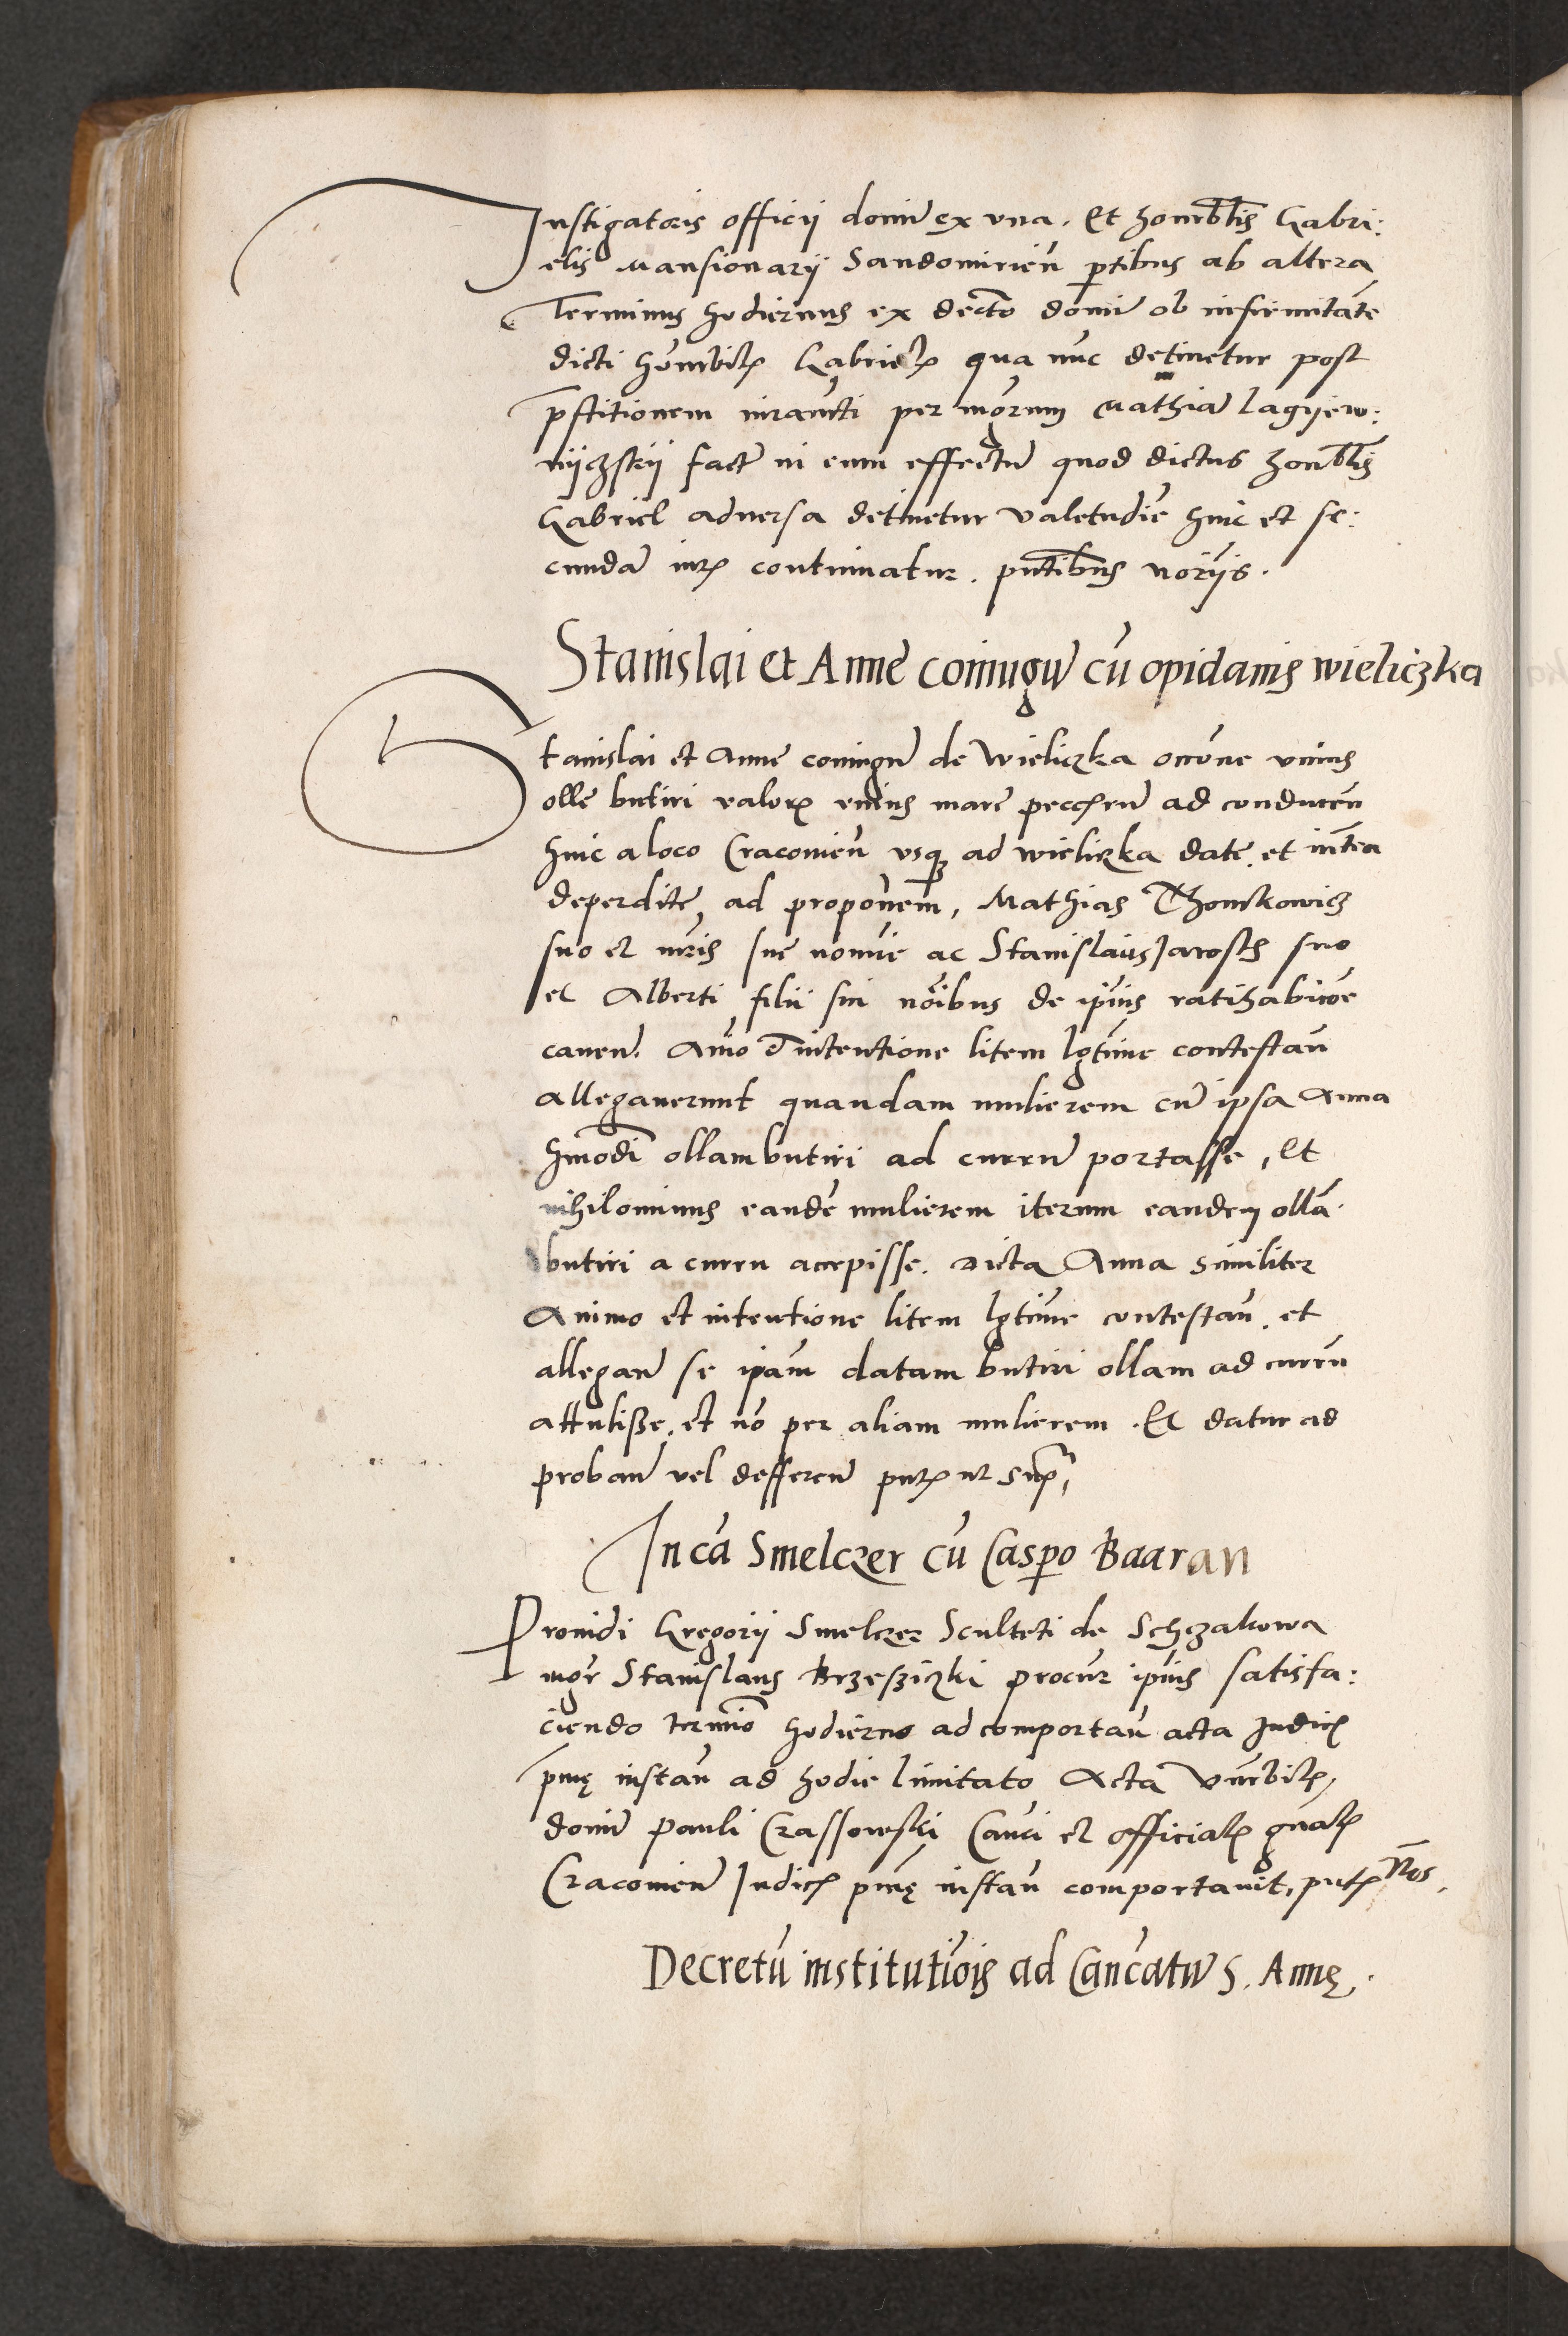 Instigatoris officij domini ex vna. Et honorblis Gabri:
elis Mansionarij Sandomirien̄ ptibus ab altera
Terminus hodiernus ex decto domī ob infirmitatē
dicti honorbilis Gabrielis qua nūc detinetur post
p̄stitionem iuramēti per mgrum Mathiā Lagijew:
nijczskij factā in eum effectū quod dictus honorblis
Gabriel aduersa detinetur valetudīe hinc et se:
cundā iuris continuatur. pn̄tibus notrijs.
Stanislai et Annē coniugū cū opidanis wieliczka
Stanislai et Annē coniugū de Wieliczka occōne vnius
olle butiri valoris vnius marē peccīarū ad conducen̄
hinc a loco Cracouien̄ vsq3 ad wieliczka date. et intea
deperdite, ad proponen̄, Mathias Thomkowicz
suo et vxoris sue nomīe ac Stanislaus Jarosch suo
et Alberti filii sui nōibus de ipīus ratihabicōe
cauen̄. Animo et intentione litem lgtime contestan̄
allegauerunt quandam mulierem cū ipsa Anna
hmōdi ollam butiri ad currū portasse, Et
nihilominus eandē mulierem iterum eandem ollā
butiri a curru accepisse. Dicta Anna similiter
Animo et intentione litem lgtime contestan̄. et
allegan̄ se ipam datam butiri ollam ad currū
attulisse. et nō per aliam mulierem. Et datur ad
proban̄ vel defferen̄ pn̄tis ut supra
In cā Smelczer cū Caspo Baaran
Prouidi Gregorij Smelczer Sculteti de Schczakowa
mgr Stanislaus Brzesziczki procur ipīus satisfa:
ciendo termīo hodierno ad comportan̄ acta Judicis
pmę instan̄ ad hodie limitato Acta Vnrbilis
domī Pauli Crassowski Canci et officialis gnalis
Cracouien̄ Judicis pmę instan̄ comportauit, pn̄tis nos.
Decretū institutiōis ad Cancatū S. Annę.